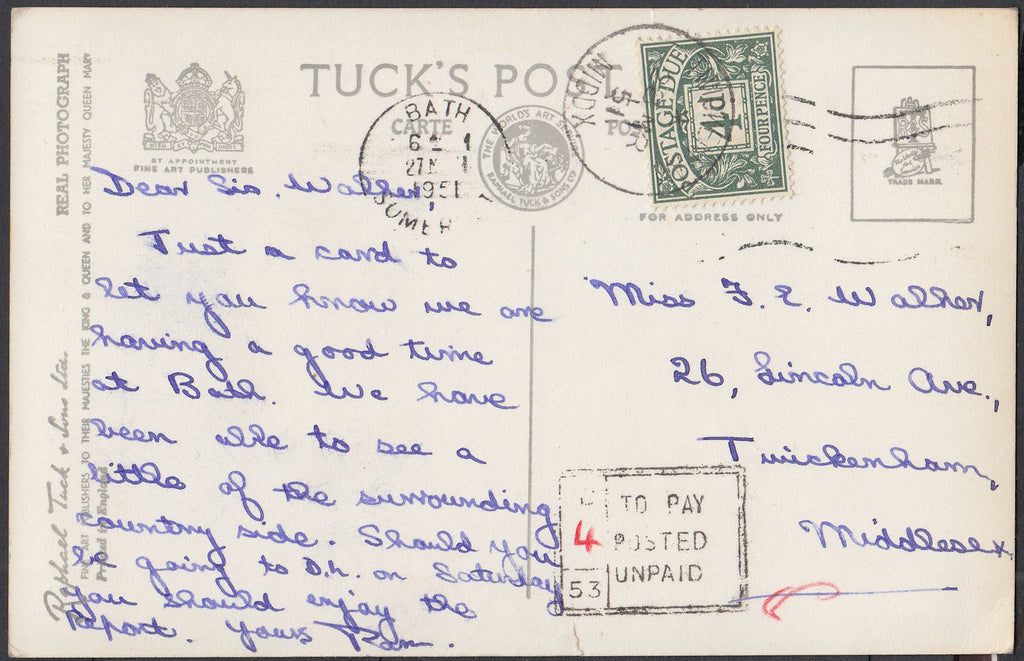 TUCK'S PO
CARTE
PO
REAL PHOTOGRAPH
FINE ART PUBLISHERS TO THEIR MAJESTIES THE KING & QUEEN AND TO HER MAJESTY QUEEN MARY
Raphael Tuck & Sons Ltd.
Printed in England
BY APPOINTMENT
FINE ART PUBLISHERS
THE WORLD'S ART SERVICE
RAPHAEL TUCK & SONS LTD
BATH
1951
SOMER
MIDDX
POSTAGE DUE
4d
FOUR PENCE
TRADE MARK
FOR ADDRESS ONLY
Dear Sis. Walker,
Just a card to
let you know we are
having a good time
at Bath. We have
been able to see a
little of the surrounding
country side. Should you
be going to D.h. on Saturday
you should enjoy the
Report. Yours
Miss F. E. Walker,
26, Lincoln Ave.,
Twickenham,
Middlesex
4
53
TO PAY
POSTED
UNPAID